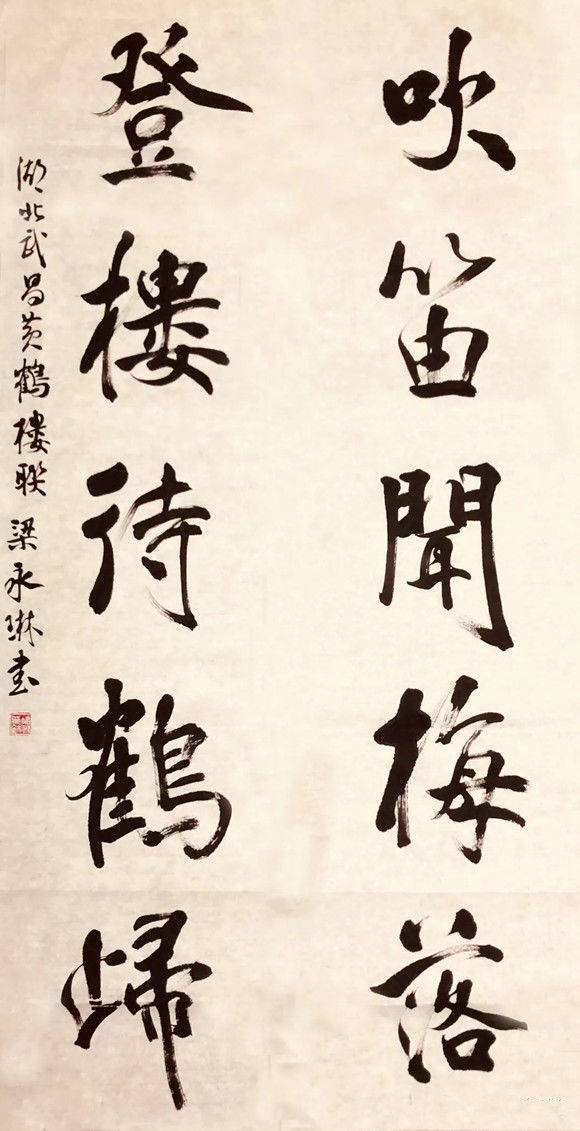 吹笛聞梅落
登樓待鶴歸
湖北武昌黄鶴樓联 梁永琳书